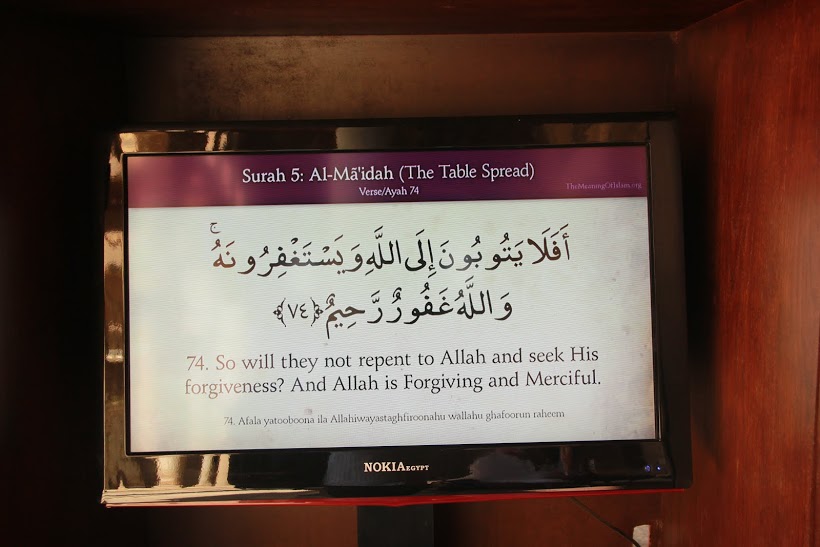 Surah 5: Al-Mā'idah (The Table Spread)
Verse/Ayah 74
TheMeaningOfIslam.org
أَفَلَا يَتُوبُونَ إِلَى اللَّهِ وَيَسْتَغْفِرُونَهُ ۚ
وَاللَّهُ غَفُورٌ رَّحِيمٌ ﴿٧٤﴾
74. So will they not repent to Allah and seek His
forgiveness? And Allah is Forgiving and Merciful.
74. Afala yatooboona ila Allahiwayastaghfiroonahu wallahu ghafoorun raheem
NOKIA EGYPT